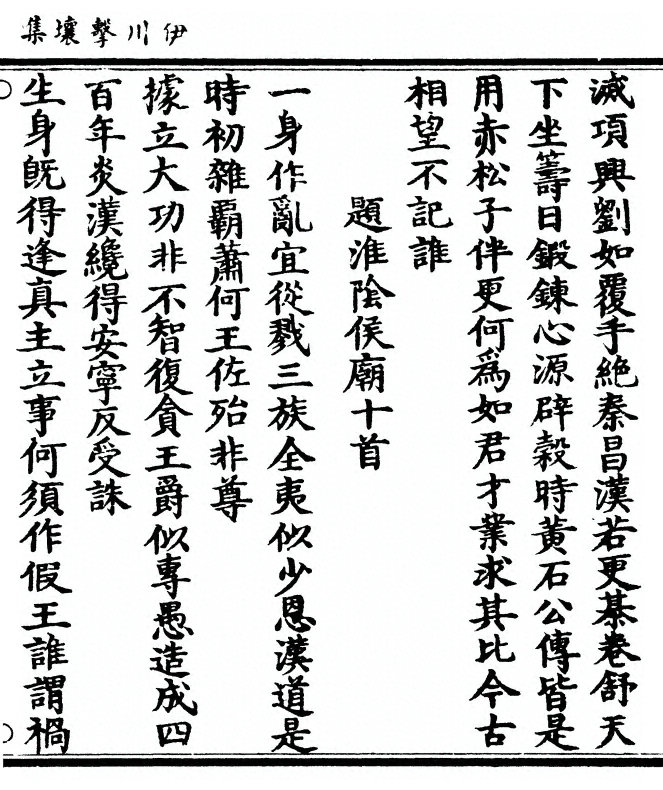 伊川擊壤集
滅項興劉如覆手絶秦昌漢若更棊卷舒天
下坐籌日鍛鍊心源辟穀時黄石公傳皆是
用赤松子伴更何爲如君才業求其比今古
相望不記誰
題淮陰侯廟十首
一身作亂宜從戮三族全夷似少恩漢道是
時初雜覇蕭何王佐殆非尊
據立大功非不智復貪王爵似專愚造成四
百年炎漢纔得安寧反受誅
生身旣得逢真主立事何須作假王誰謂禍